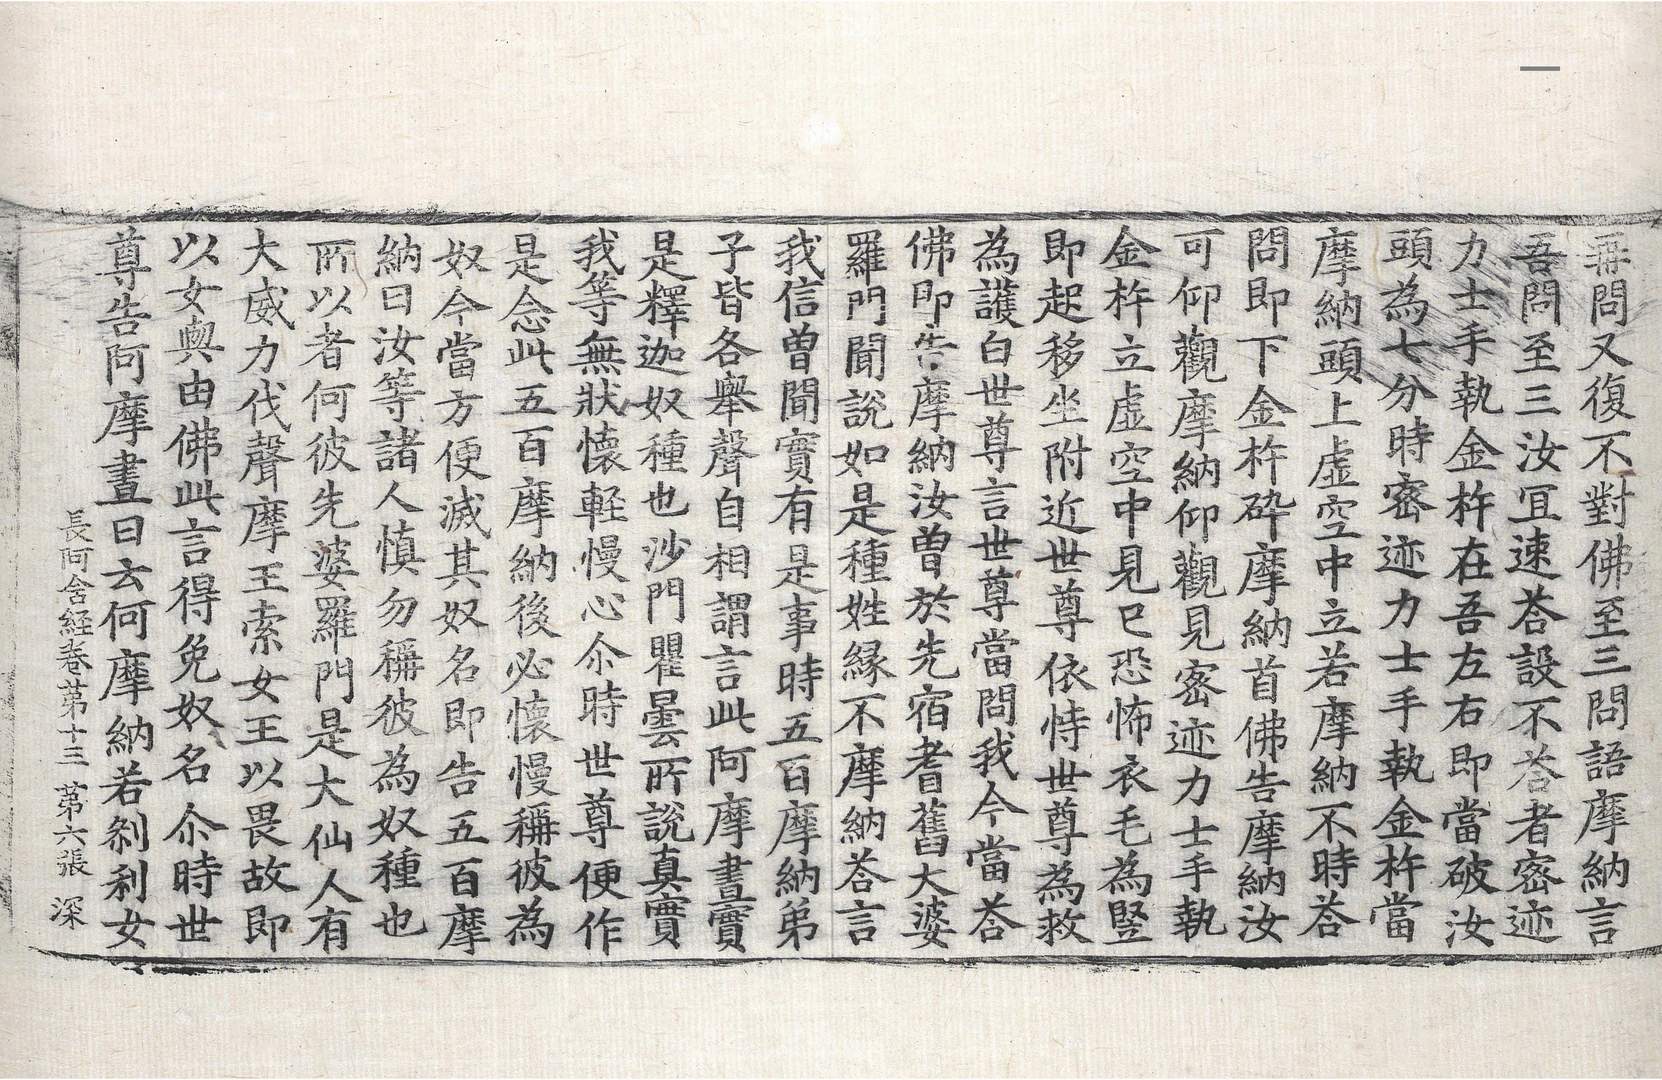 再問又復不對佛至三問語摩納言
吾問至三汝冝速荅設不荅者密迹
力士手執金杵在吾左右即當破汝
頭為七分時密迹力士手執金杵當
摩納頭上虛空中立若摩納不時荅
問即下金杵碎摩納首佛告摩納汝
可仰觀摩納仰觀見密迹力士手執
金杵立虛空中見已恐怖衣毛為竪
即起移坐附近世尊依恃世尊為救
為護白世尊言世尊當問我今當荅
佛即告摩納汝曽於先宿耆舊大婆
羅門聞說如是種姓緣不摩納荅言
我信曽聞實有是事時五百摩納弟
子皆各舉聲自相謂言此阿摩晝實
是釋迦奴種也沙門瞿曇所說真實
我等無狀懐軽慢心尒時世尊便作
是念此五百摩納後必懐慢稱彼為
奴今當方便滅其奴名即告五百摩
納曰汝等諸人慎勿稱彼為奴種也
所以者何彼先婆羅門是大仙人有
大威力伐聲摩王索女王以畏故即
以女與由佛此言得免奴名尒時世
尊告阿摩晝曰云何摩納若剎利女
長阿含経卷第十三 第六張 深